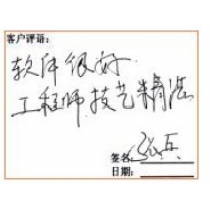 客户评语：
软件很好
工程师技艺精湛
签名：
日期：